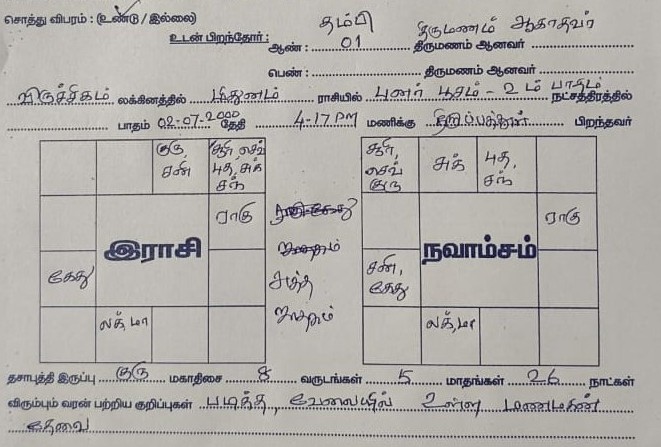 சொத்து விபரம் : (உண்டு / இல்லை)
தம்பி திருமணம் ஆகாதவர்
உடன் பிறந்தோர் : ஆண் : 01 திருமணம் ஆனவர்
பெண் : திருமணம் ஆனவர்
விருச்சிகம் லக்கினத்தில் மிதுனம் ராசியில் புனர் பூசம் - 2 ம் பாதம் நட்சத்திரத்தில்
பாதம் 02-07-2000 தேதி 4-17 PM மணிக்கு திருப்பத்தூர் பிறந்தவர்
குரு, சனி
சூரி, செவ்
புத, சுக்
சந்
ராகு
இராசி
கேது
லக், மா
ராகு கேது
ஜாதகம்
சுத்த
ஜாதகம்
சூரி,
செவ்
குரு
சுக்
புத,
சந்
ராகு
நவாம்சம்
சனி,
கேது
லக், மா
தசாபுத்தி இருப்பு குரு மகாதிசை 8 வருடங்கள் 5 மாதங்கள் 26 நாட்கள்
விரும்பும் வரன் பற்றிய குறிப்புகள் படித்த, வேலையில் உள்ள மணமகன்
தேவை